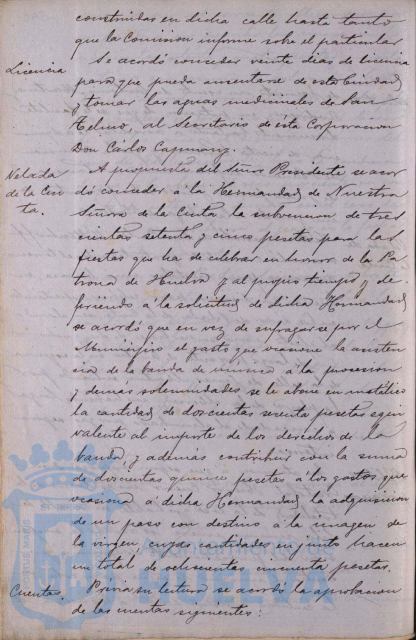 construidas en dicha calle hasta tanto
que la Comision informe sobre el particular.
Licencia
Se acordó conceder veinte dias de licencia
para que pueda ausentarse de esta Ciudad
y tomar las aguas medicinales de San
Telmo, al Secretario de ésta Corporacion
Don Cárlos Capmany.
Velada
de la Cin
ta.
A propuesta del Señor Presidente se acor
dó conceder á la Hermandad de Nuestra
Señora de la Cinta la subvencion de tres
cientas setenta y cinco pesetas para las
fiestas que ha de celebrar en honor de la Pa
trona de Huelva y al propio tiempo, y de-
firiendo á la solicitud de dicha Hermandad
se acordó que en vez de sufragarse por el
Municipio el gasto que ocasione la asisten
cia de la banda de música á la procesion
y demás solemnidades se le abone en metálico
la cantidad de doscientas sesenta pesetas equi
valente al importe de los derechos de la
banda, y además contribuir con la suma
de doscientas quince pesetas á los gastos que
ocasiona á dicha Hermandad la adquisicion
de un paso con destino á la imagen de
la virgen, cuyas cantidades en junto hacen
un total de ochocientas cincuenta pesetas.
Cuentas.
Prévia su lectura se acordó la aprobacion
de las cuentas siguientes:
HUELVA